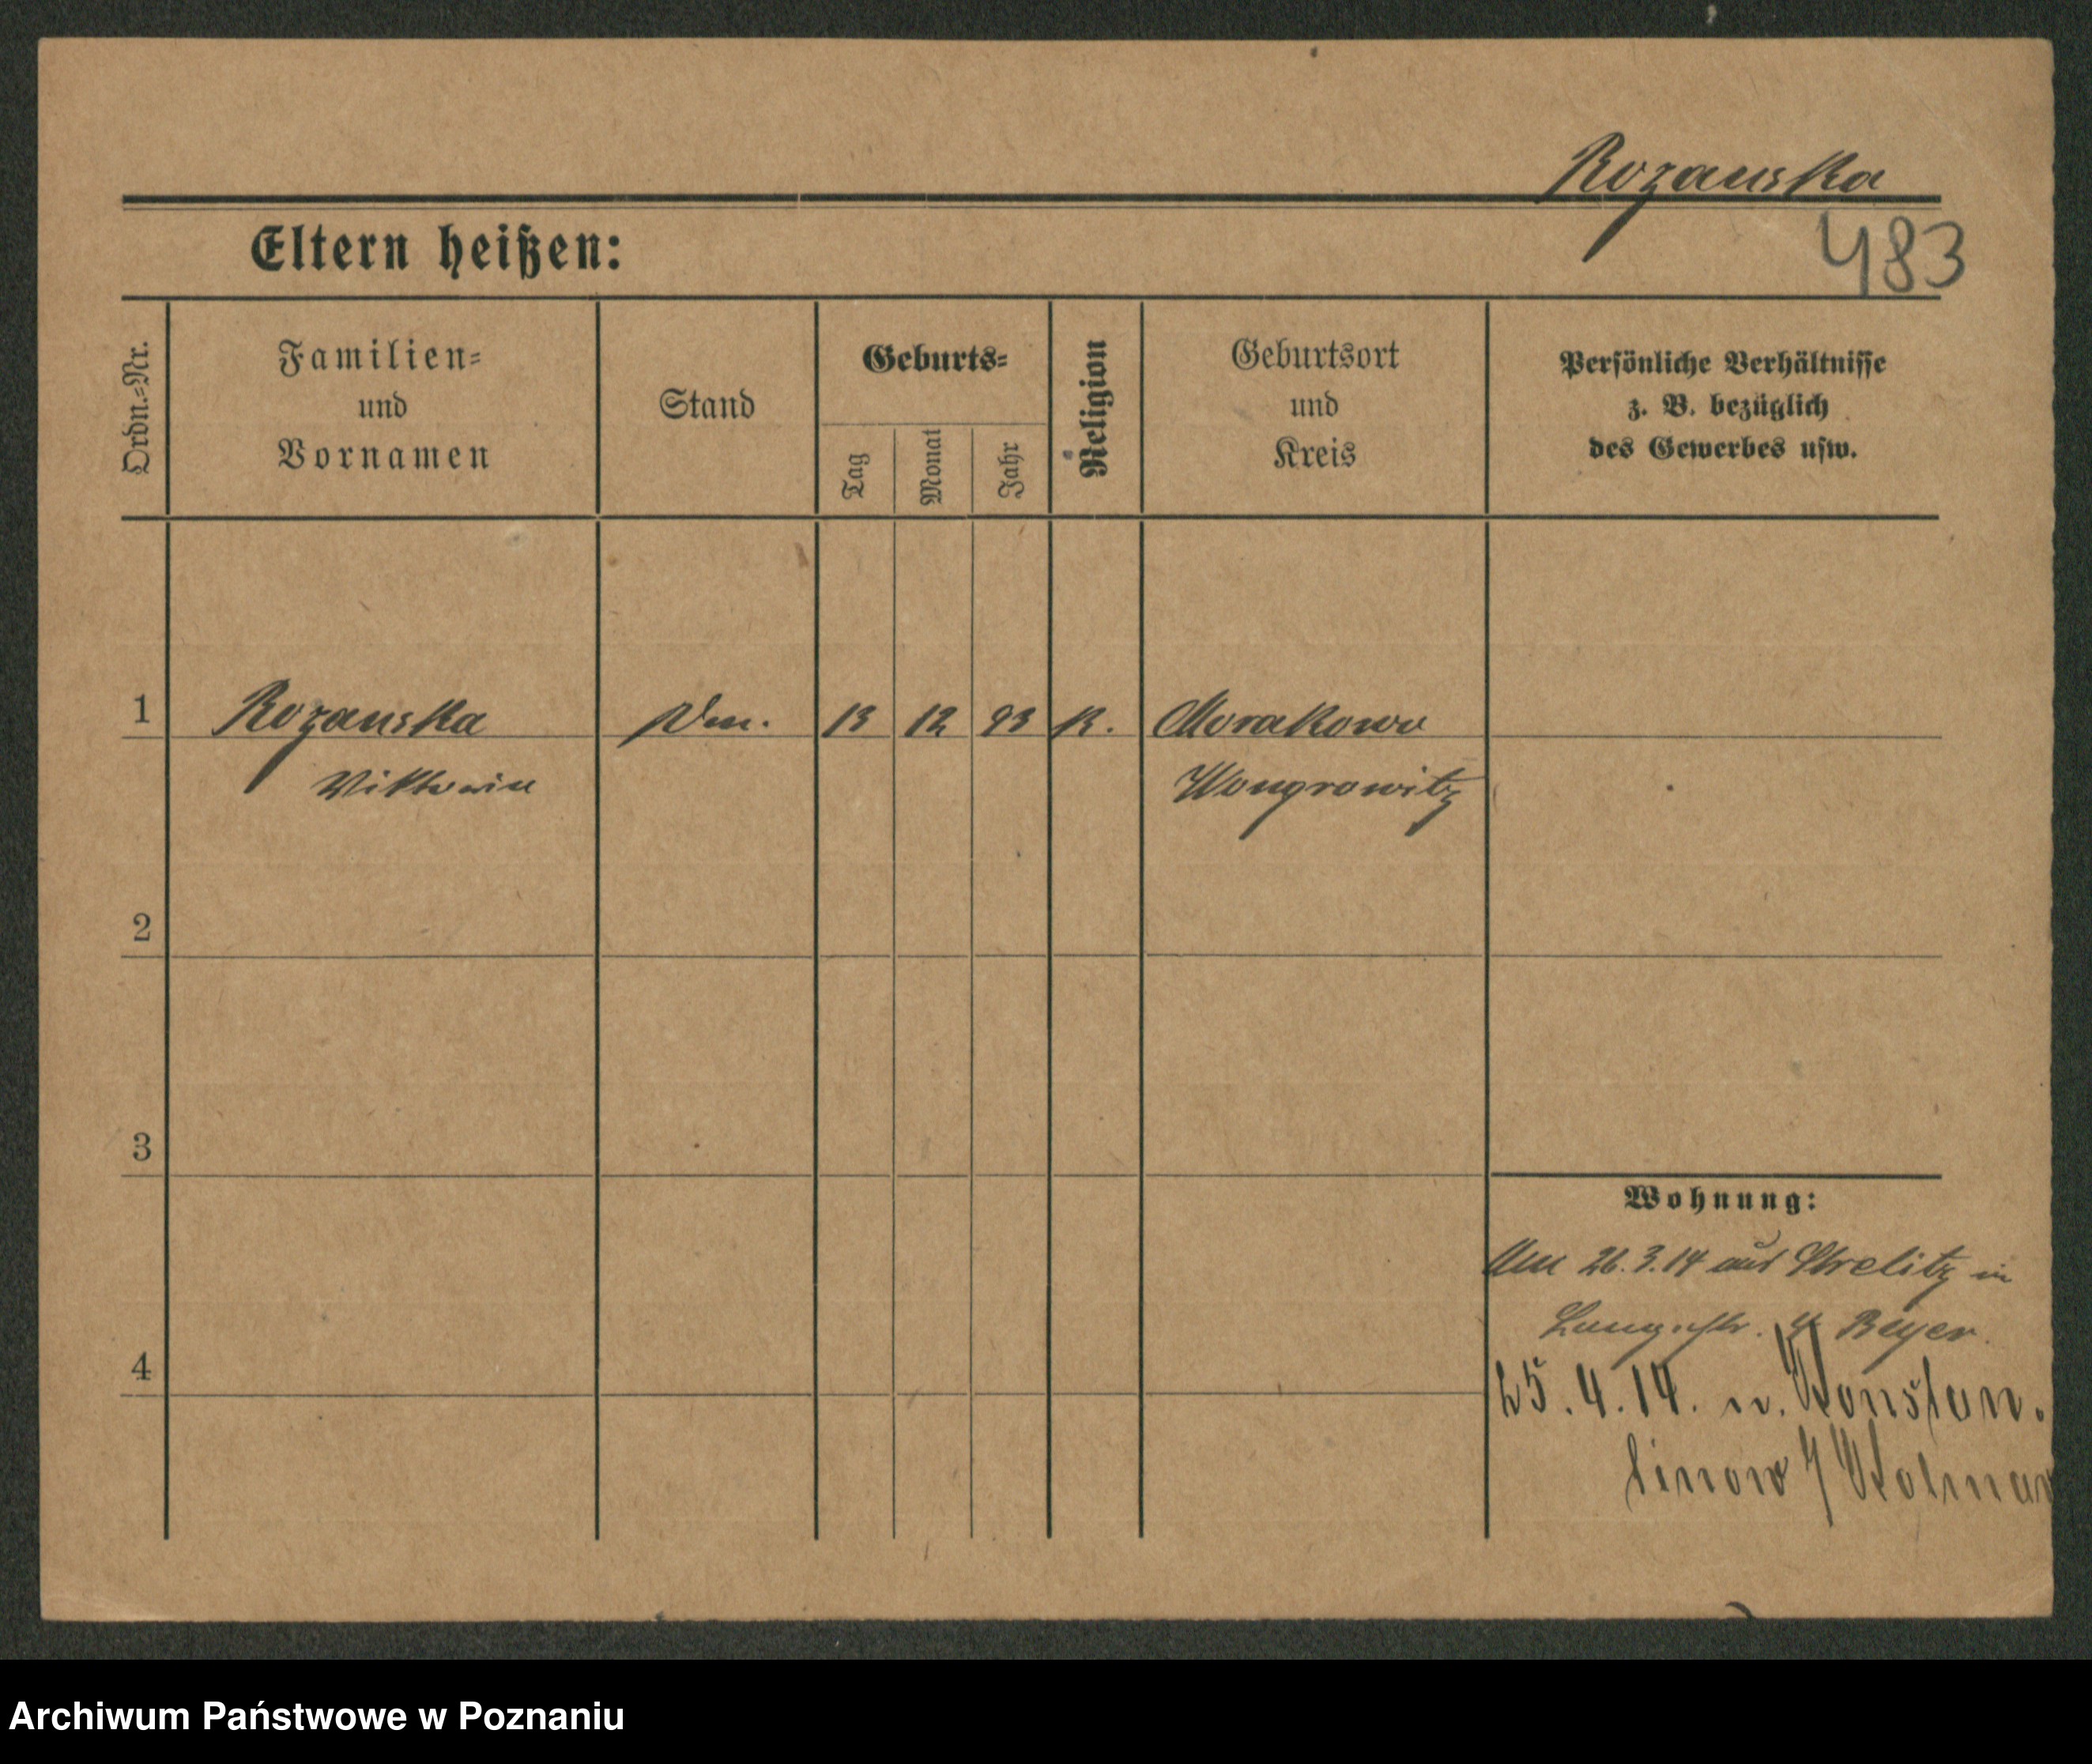 Rozanska
483
Eltern heißen:
Ordn.=Nr.
Familien=
und
Vornamen
Stand
Geburts=
Tag
Monat
Jahr
Religion
Geburtsort
und
Kreis
Persönliche Verhältnisse
z. B. bezüglich
des Gewerbes usw.
1 Rozanska 13 12 93 K. Morakowo
Viktoria Wongrowitz
2
3
4
Wohnung:
Am 26.3.14 aus Strelitz in
Langestr. Beyer.
25.4.14. n. Konstan.
tinow / Kolmar
Archiwum Państwowe w Poznaniu